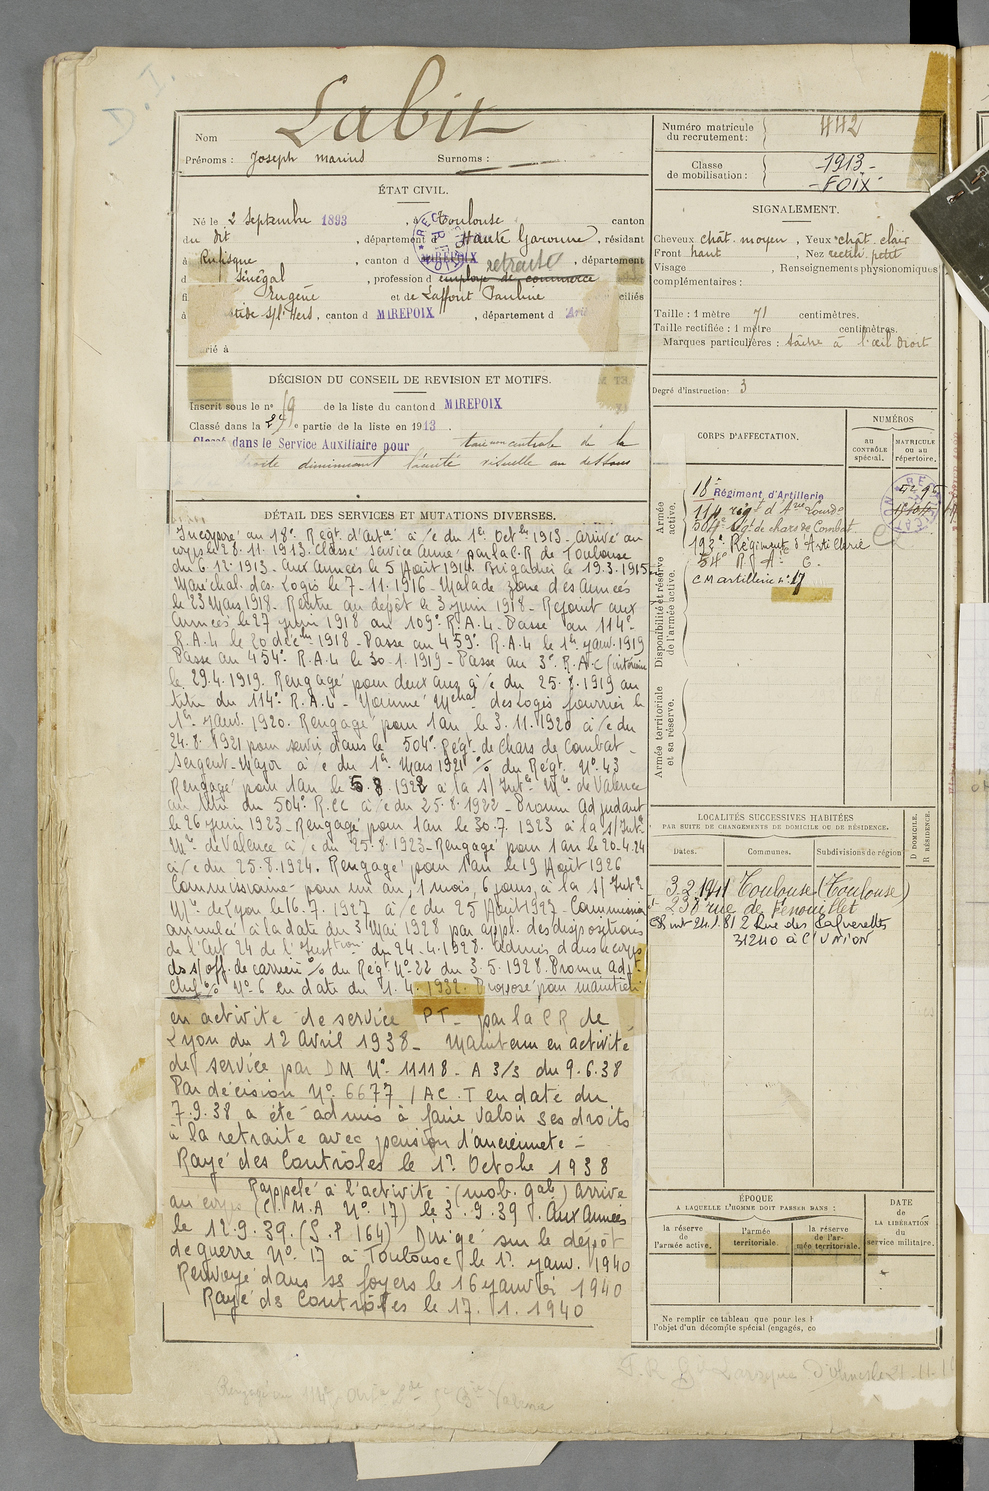 D.I.
Labit
Nom
Prénoms : Joseph Marius Surnoms :
ÉTAT CIVIL.
Né le 2 Septembre 1893, à Toulouse canton
du dit, département d Haute Garonne, résidant
à Rufisque, canton d MIREPOIX, département
retraité
d Sénégal, profession d employé de commerce
fi Eugène et de Laffont Pauline ciliés
à stide s/l'Hers, canton d MIREPOIX, département d Ariè
arié à
DÉCISION DU CONSEIL DE REVISION ET MOTIFS.
Inscrit sous le n° 19 de la liste du canton d MIREPOIX
Classé dans la 2e partie de la liste en 1913.
Classé dans le Service Auxiliaire pour taie non centrale de la
droite diminuant l'acuité visuelle au dessous
DÉTAIL DES SERVICES ET MUTATIONS DIVERSES.
Incorporé au 18e Régt d'Artie à/c du 1er Octbre 1913 - arrivé au
corps le 28.11.1913. Classé Service Armé par la C.R de Toulouse
du 6.12.1913 - Aux Armées le 5 Août 1914 Brigadier le 19.3.1915
Maréchal des Logis le 7-11.1916 - Malade zone des Armées
le 23 Mars 1918 - Rentre au dépôt le 3 juin 1918 - Rejoint aux
Armées le 27 juin 1918 au 109e R.A.L - Passé au 114e
R.A.L le 20 décbre 1918 - Passé au 459e R.A.L le 1er janv. 1919
Passé au 454e R.A.L le 30-1.1919 - Passé au 3e R.A.C
le 29.4.1919. Rengagé pour deux ans à/c du 25.8.1919 au
titre du 114e R.A.L - Nommé Mchal des Logis fourrier le
1er janv. 1920. Rengagé pour 1 an le 3.11.1920 à/c du
24.8.1921 pour servir dans le 504e Régt de Chars de Combat -
Sergent-Major à/c du 1er Mars 1921 % du Régt. N° 43
Rengagé pour 1 an le 5.8.1922 à la s/Intce Mre de Valence
au titre du 504e R.CC à/c du 25.8.1922 - Promu Adjudant
le 26 juin 1923 - Rengagé pour 1 an le 30.7.1923 à la s/Intce
Mre de Valence à/c du 25.8.1923 - Rengagé pour 1 an le 20.4.24
à/c du 25.8.1924. Rengagé pour 1 an le 19 Août 1926
Commissionné pour un an, 1 mois, 6 jours, à la s/Intce
Mre de Lyon le 16.7.1927 à/c du 25 Août 1927 - Commission
annulée à la date du 3 Mai 1928 par appl. des dispositions
de l'Art 24 de l'Instion du 24.4.1928. admis dans le corps
des s/off. de carrière % du Régt N° 22 du 3.5.1928. Promu Adjt
Chef % N° 6 en date du 1.4.1932. Proposé pour maintien
en activité de service PT - par la C R de
Lyon du 12 Avril 1938 - Maintenu en activité
de service par D M N° 11118 - A 3/3 du 9.6.38
Par décision N° 6677 / AC.T en date du
7.9.38 a été admis à faire valoir ses droits
à la retraite avec pension d'ancienneté -
Rayé des Contrôles le 1er Octobre 1938
Rappelé à l'activité (mob. gale) arrivé
au corps (C.M.A N° 17) le 3.9.39. Aux Armées
le 12.9.39. (S.P 164) Dirigé sur le dépôt
de guerre N° 17 à Toulouse le 1er janv. 1940
Renvoyé dans ses foyers le 16 janvier 1940
Rayé des Contrôles le 17.1.1940
Numéro matricule
du recrutement : 442
Classe
de mobilisation : 1913 -
- FOIX -
SIGNALEMENT.
Cheveux chât. moyen, Yeux chât. clair
Front haut, Nez rectil. petit
Visage, Renseignements physionomiques
complémentaires :
Taille : 1 mètre 71 centimètres.
Taille rectifiée : 1 mètre centimètres.
Marques particulières : tâche à l'œil droit
Degré d'instruction : 3
CORPS D'AFFECTATION.
NUMÉROS
AU
CONTRÔLE
spécial.
MATRICULE
ou au
répertoire.
Armée
active.
18e Régiment d'Artillerie
114 régt d'Arie Lourde
504e régt de chars de Combat
193e Régiment d'Artillerie
54e R.A.C.
C M artillerie n° 17
Disponibilité et réserve
de l'armée active.
Armée territoriale
et sa réserve.
LOCALITÉS SUCCESSIVES HABITÉES
PAR SUITE DE CHANGEMENTS DE DOMICILE OU DE RÉSIDENCE.
Dates.
Communes.
Subdivisions de région
D DOMICILE.
R RÉSIDENCE.
3.2.1941 Toulouse (Toulouse)
234 rue de Fenouillet
2 Rue des
31240 à L'UNION
ÉPOQUE
A LAQUELLE L'HOMME DOIT PASSER DANS :
la réserve
de
l'armée active.
l'armée
territoriale.
la réserve
de l'ar-
mée territoriale.
DATE
de
LA LIBÉRATION
du
service militaire.
Ne remplir ce tableau que pour les h
l'objet d'un décompte spécial (engagés, co